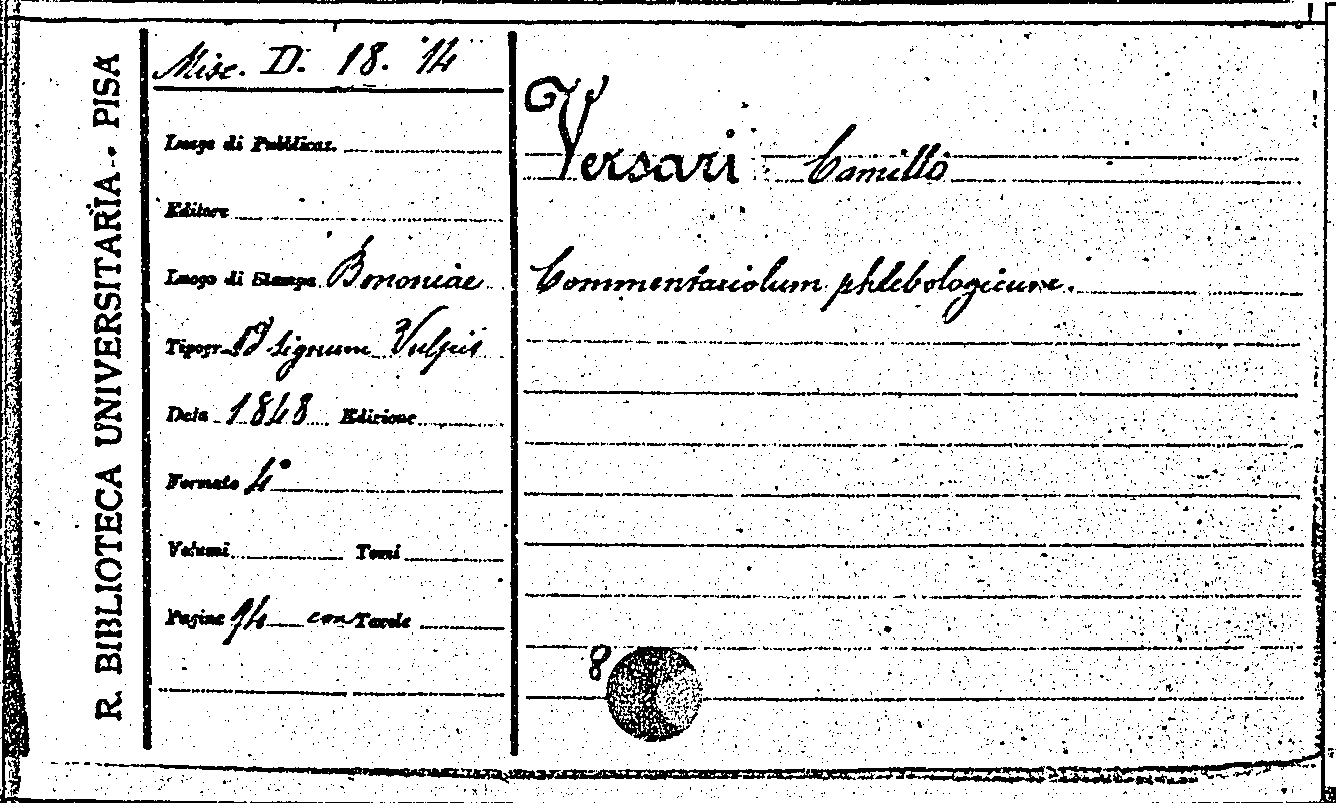 R. BIBLIOTECA UNIVERSITARIA - PISA
Misc. D. 18. 14
Luogo di Pubblicaz.
Editore
Luogo di Stampa Bononiae
Tipogr. Ad signum Vulpis
Data 1848 Edizione
Formato 4°
Volumi Tomi
Pagine 94 con Tavole
Versari Camillo
Commentariolum phlebologicum.
8